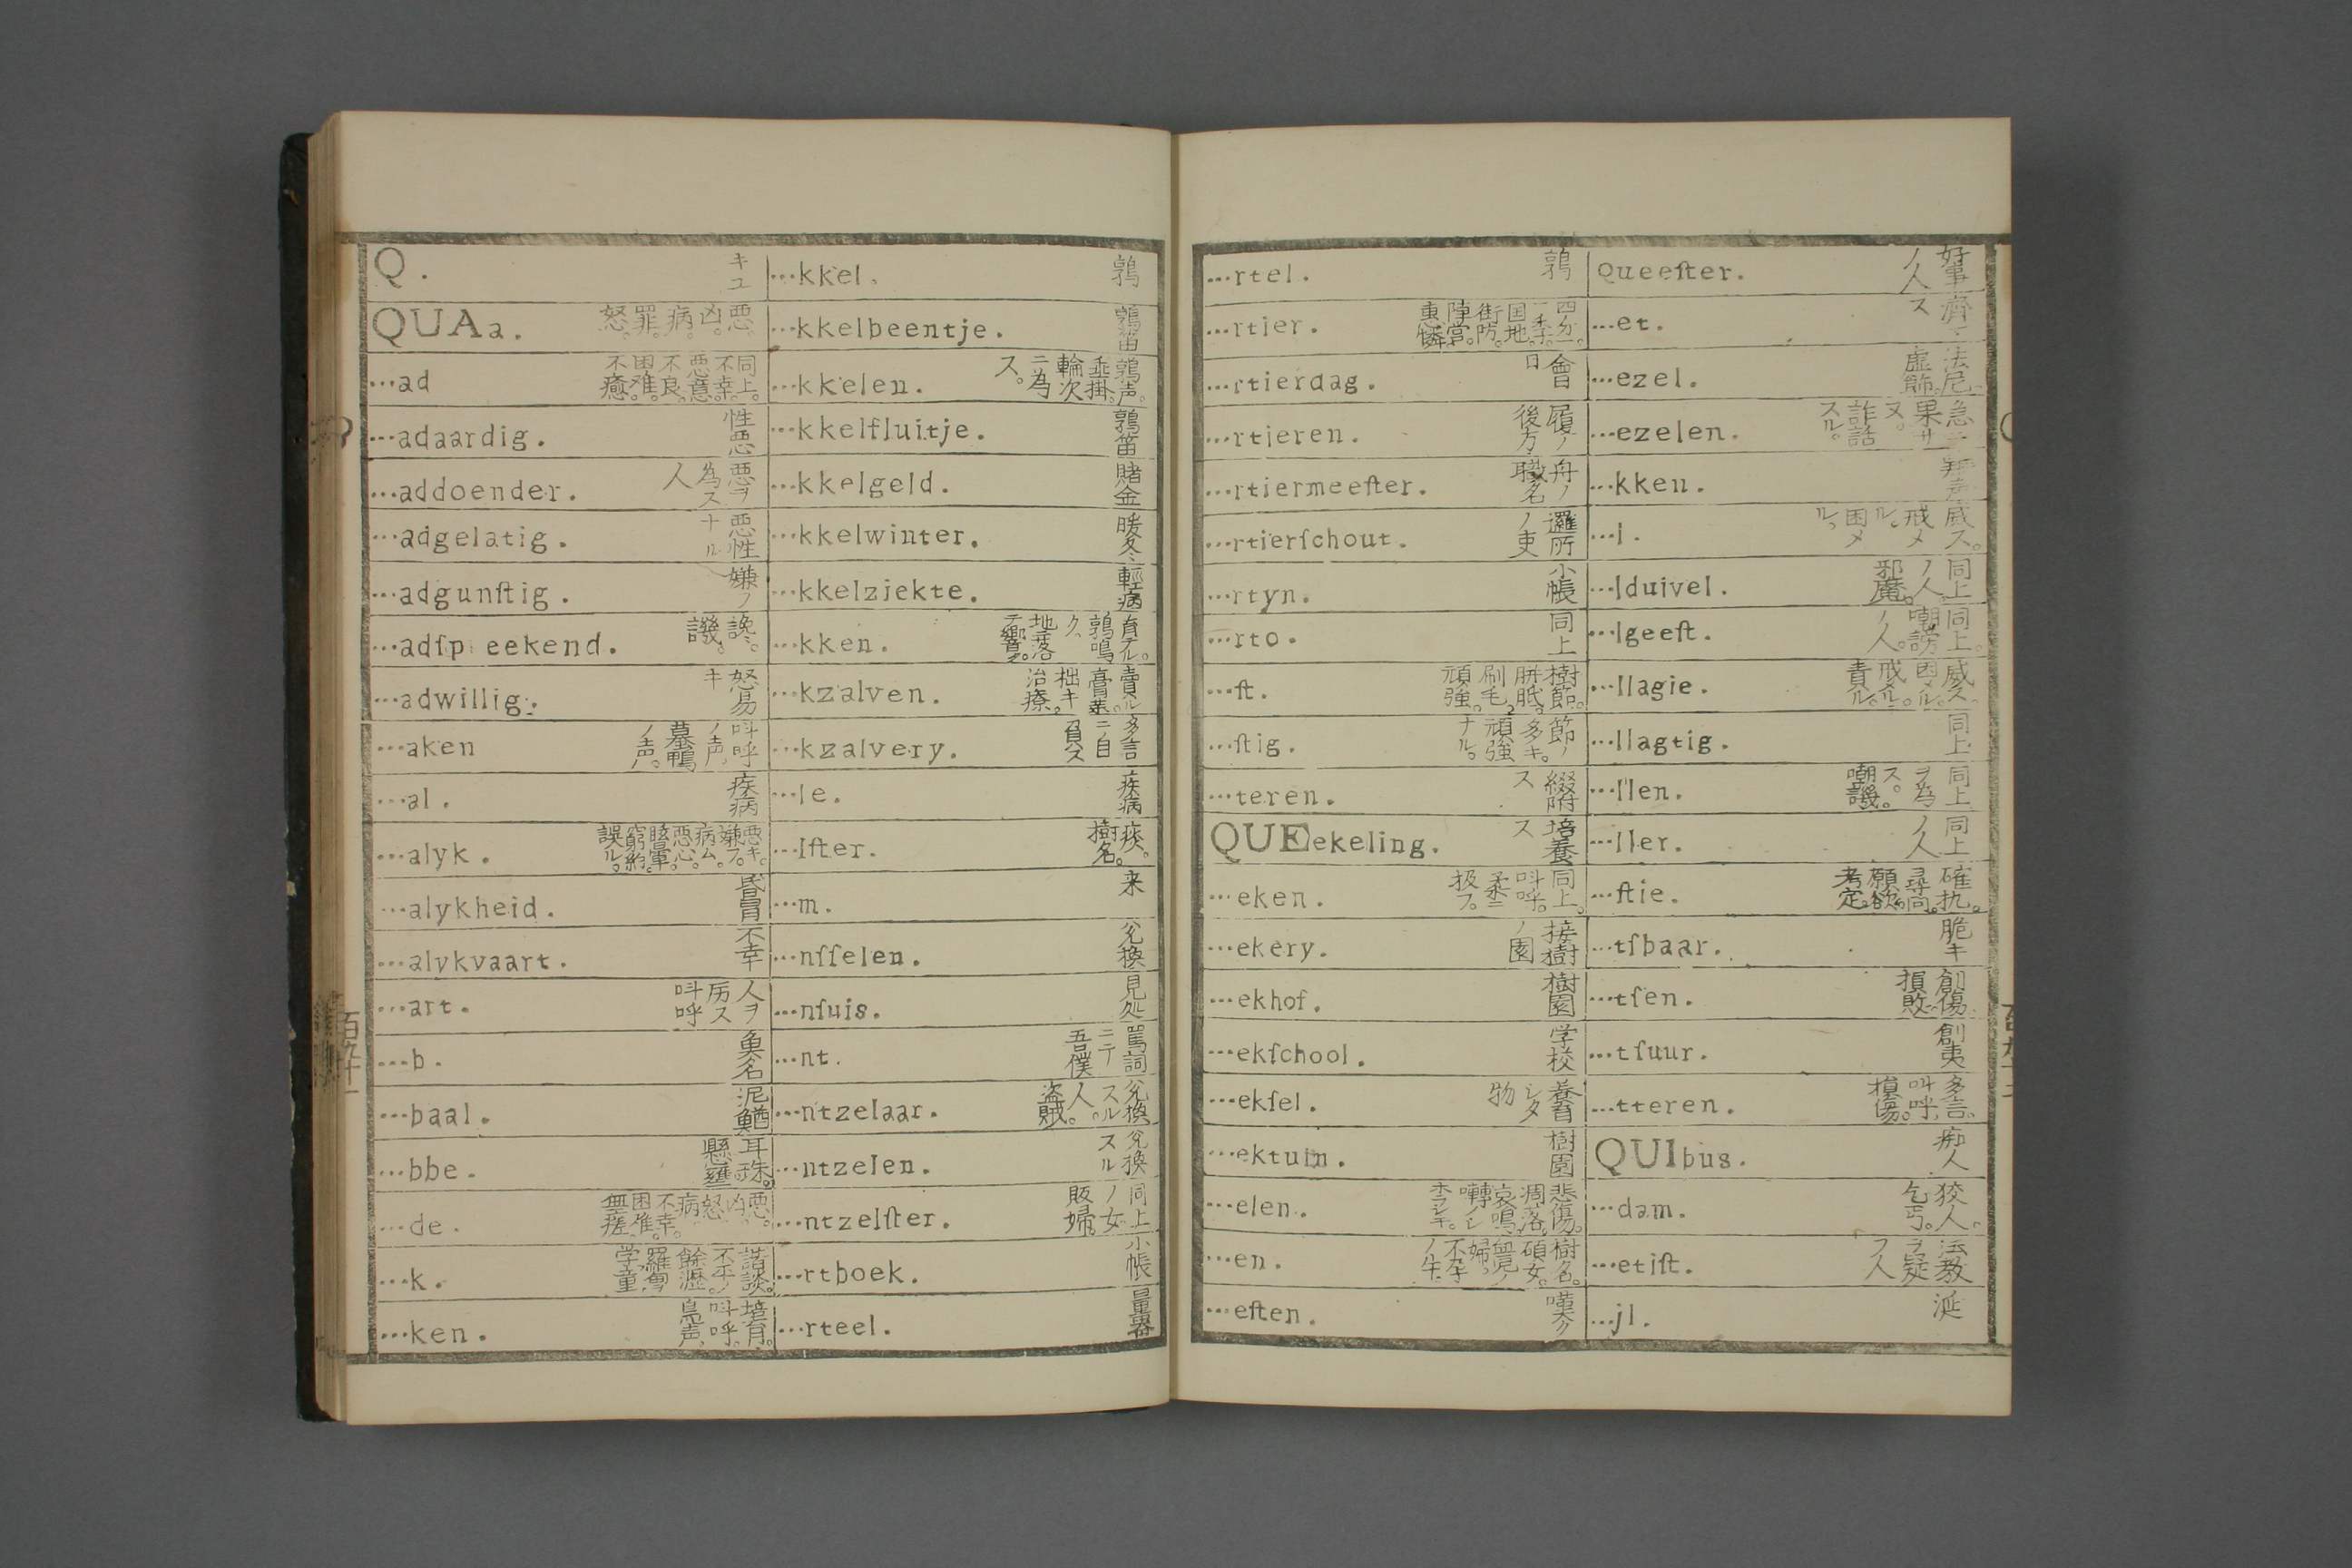 Q. キユ
QUAa. 悪。凶。病。罪。怒。
...ad 同上。不幸。悪意。不良。困难。不癒。
...adaardig. 性悪
...addoender. 悪ヲ為ス人
...adgelatig. 悪性ナル
...adgunſtig. 嫌ノ
...adſp eekend. 讒。譏。
...adwillig. 怒易キ
...aken 呌呼ノ声。蟇鴨ノ声。
...al. 疾病
...alyk. 悪キ。嫌フ。病ム。悪心。眩暈。窮約。誤ル。
...alykheid. 昏冒
...alykvaart. 不幸
...art. 人ヲ厉ス呌呼
...b. 魚名
...baal. 泥鰌
...bbe. 耳珠。懸壅
...de. 悪。凶。怒。病。不幸。困难。無瘥
...k. 諧談。不平ノ餘瀝。羅甸学童
...ken. 培育。呌呼。鳥声。
...kkel. 鶉
...kkelbeentje. 鶉笛
...kkelen. 鶉声。垂掛。輪次ニ為ス。
...kkelfluitje. 鶉笛
...kkelgeld. 賭金
...kkelwinter. 暖冬
...kkelziekte. 輕病
...kken. 育テル。鶉鳴ク、地落テ響ク。
...kzalven. 賣ル膏薬。拙キ治療。
...kzalvery. 多言ニノ自負ス
...le. 疾病
...lſter. 痰。樹名。
...m. 来
...nſſelen. 兌換
...nſuis. 見処
...nt. 罵詞ニテ吾僕
...ntzelaar. 兌換スル人。盗賊。
...ntzelen. 兌換スル
...ntzelſter. 同上ノ女販婦。
...rtboek. 小帳
...rteel. 量器
...rtel. 鶉
...rtier. 四分一。季。国地。街防。陣営。恵憐。
...rtierdag. 會日
...rtieren. 履ノ後方
...rtiermeeſter. 舟ノ職名
...rtierſchout. 邏所ノ吏
...rtyn. 小帳
...rto. 同上
...ſt. 樹節。胼胝。刷毛。頑強。
...ſtig. 節ノ多キ。頑強ナル。
...teren. 綴附ス
QUEekeling. 培養ス
...eken. 同上。呌呼。柔ニ扱フ。
...ekery. 接樹ノ園
...ekhof. 樹園
...ekſchool. 学校
...ekſel. 養育シタ物
...ektuin. 樹園
...elen. 悲傷。凋落。哀鳴。囀ノ
...en. 樹名。碩女。無児ノ婦。不孕ノ牛
...eſten. 嘆ク
Queeſter. 好事ノ人
...et. 濟ス
...ezel. 法尼。虚飾。
...ezelen. 急ニ果サヌ。詐話スル。
...kken.
...l. 威ス。戒メル。困メル。
...lduivel. 同上ノ人。邪魔。
...lgeeſt. 同上。嘲謗ノ人。
...llagie. 威ス。困メル。戒メル。責ル。
...llagtig. 同上
...llen. 同上ヲ為ス。嘲譏。
...ller. 同上ノ人
...ſtie. 確执。尋问。願欲。考定。
...tſbaar. 脆キ
...tſen. 創傷。損敗。
...tſuur. 創夷
...tteren. 多言。呌呼。損傷。
QUIbus. 痴人
...dam. 狡人。乞丐。
...etiſt. 法教ヲ疑フ人
...jl. 涎